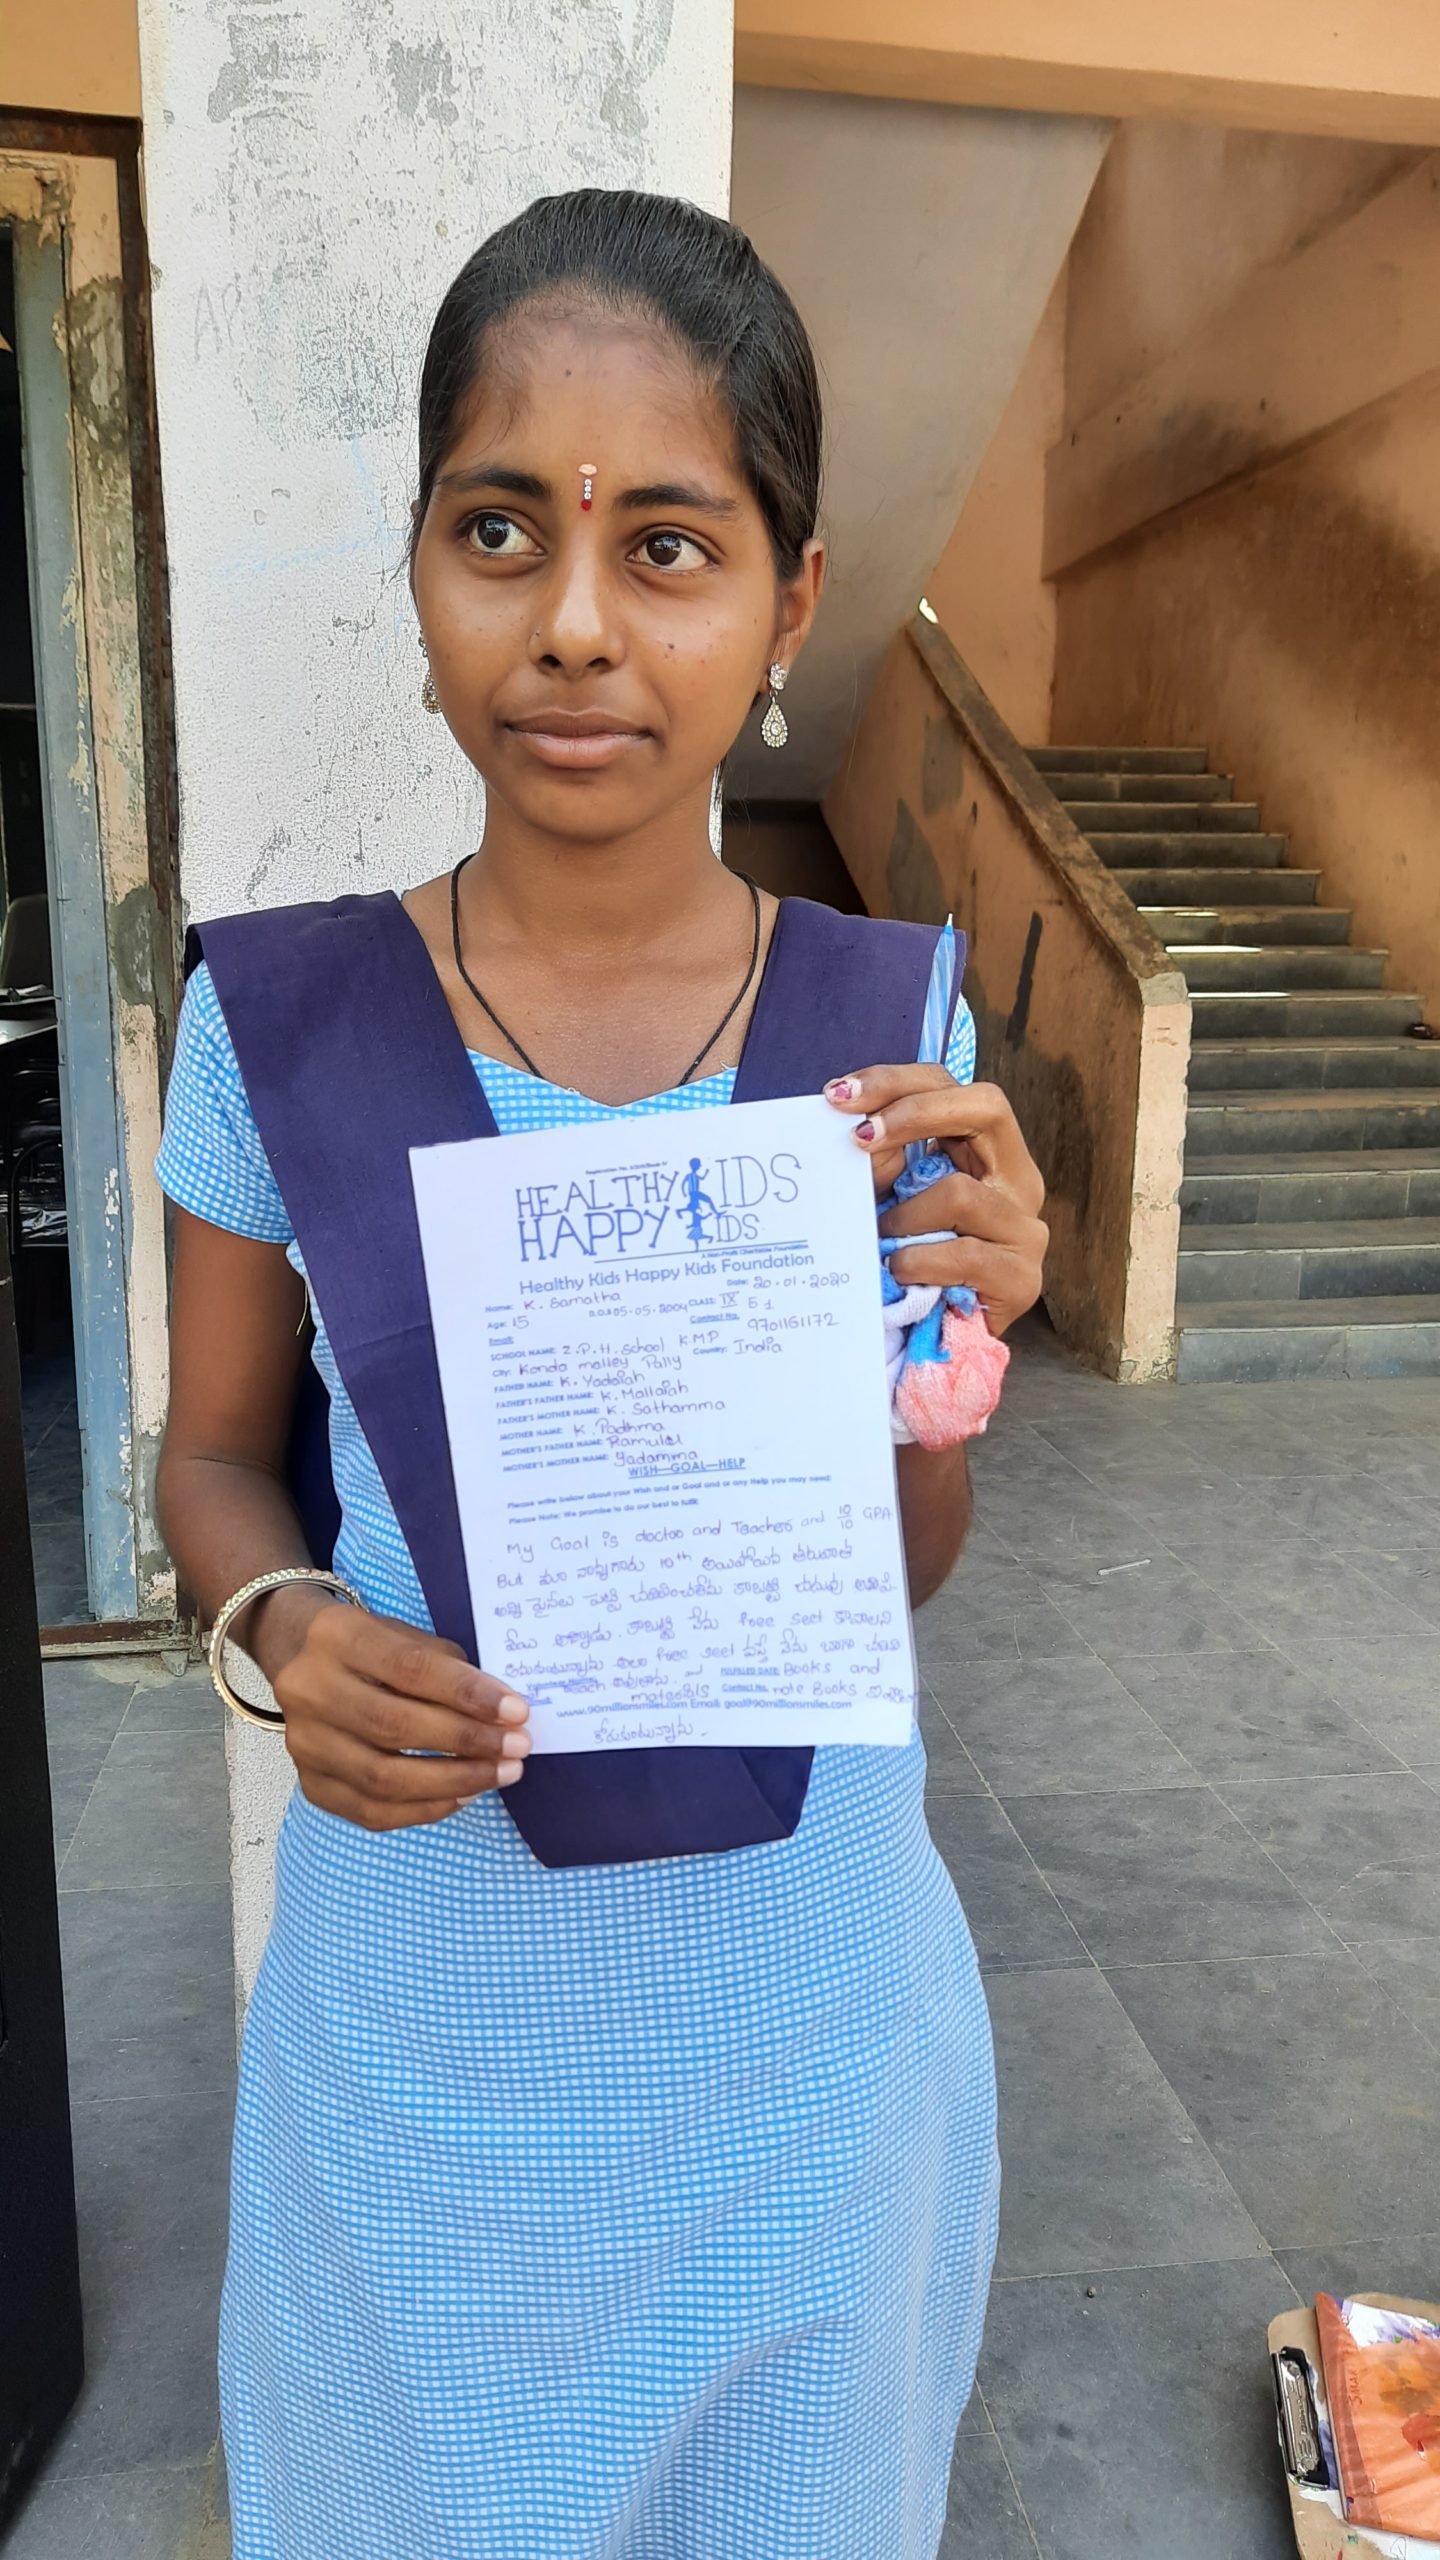 HEALTHY KIDS
HAPPY KIDS
A Non-Profit Charitable Foundation
Healthy Kids Happy Kids Foundation
Date: 20.01.2020
Name: K. Samatha
Age: 15 D.O.B 05-05-2004 CLASS: IX E1
Email: Contact No. 9701161172
SCHOOL NAME: Z.P.H. School K.M.P
City: Konda malley Pally Country: India
FATHER NAME: K. Yadaiah
FATHER'S FATHER NAME: K. Mallaiah
FATHER'S MOTHER NAME: K. Sathamma
MOTHER NAME: K. Padhma
MOTHER'S FATHER NAME: Ramulu
MOTHER'S MOTHER NAME: Yadamma
WISH—GOAL—HELP
Please write below about your Wish and or Goal and or any Help you may need:
Please Note: We promise to do our best to fulfill:
My Goal is doctoo and Teachers and 10/10 GPA
But మా నాన్నగారు 10th అయిపోయిన తరువాత
పెట్టి కాబట్టి చదువు
కాబట్టి నేను free seet కావాలని
అనుకుంటున్నాను అలా free seet వస్తే నేను బాగా
Volunteer Name: FULFILLED DATE: Books and
Email: materials Contact No. note Books
www.90millionsmiles.com Email: goal@90millionsmiles.com
కోరుకుంటున్నాను.